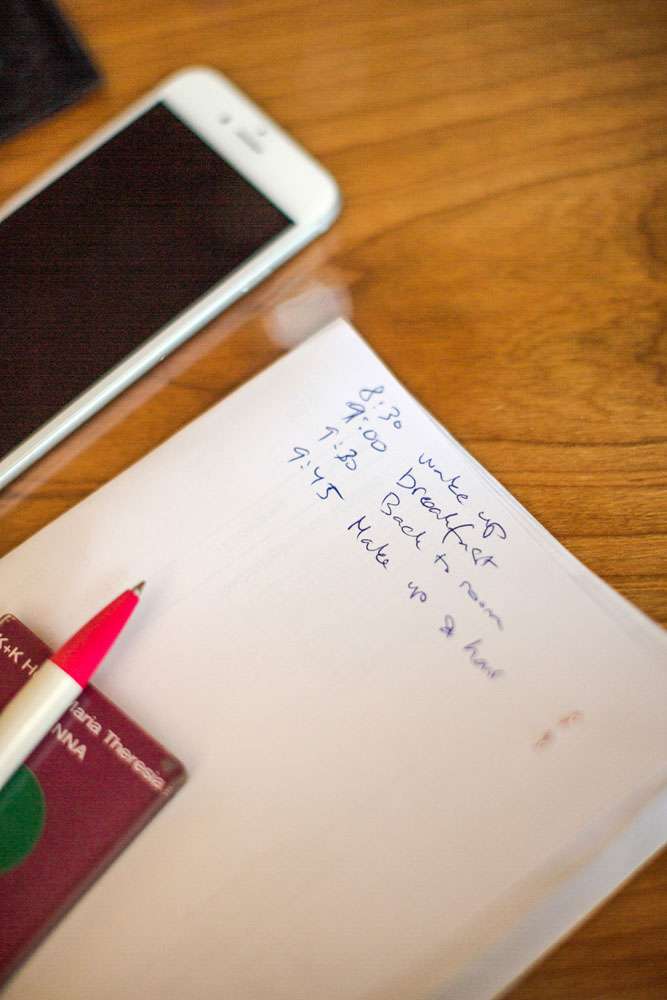 8:30 wake up
9:00 breakfast
9:30 Back to room
9:45 Make up & hair
K+K H
maria Theresia
NNA